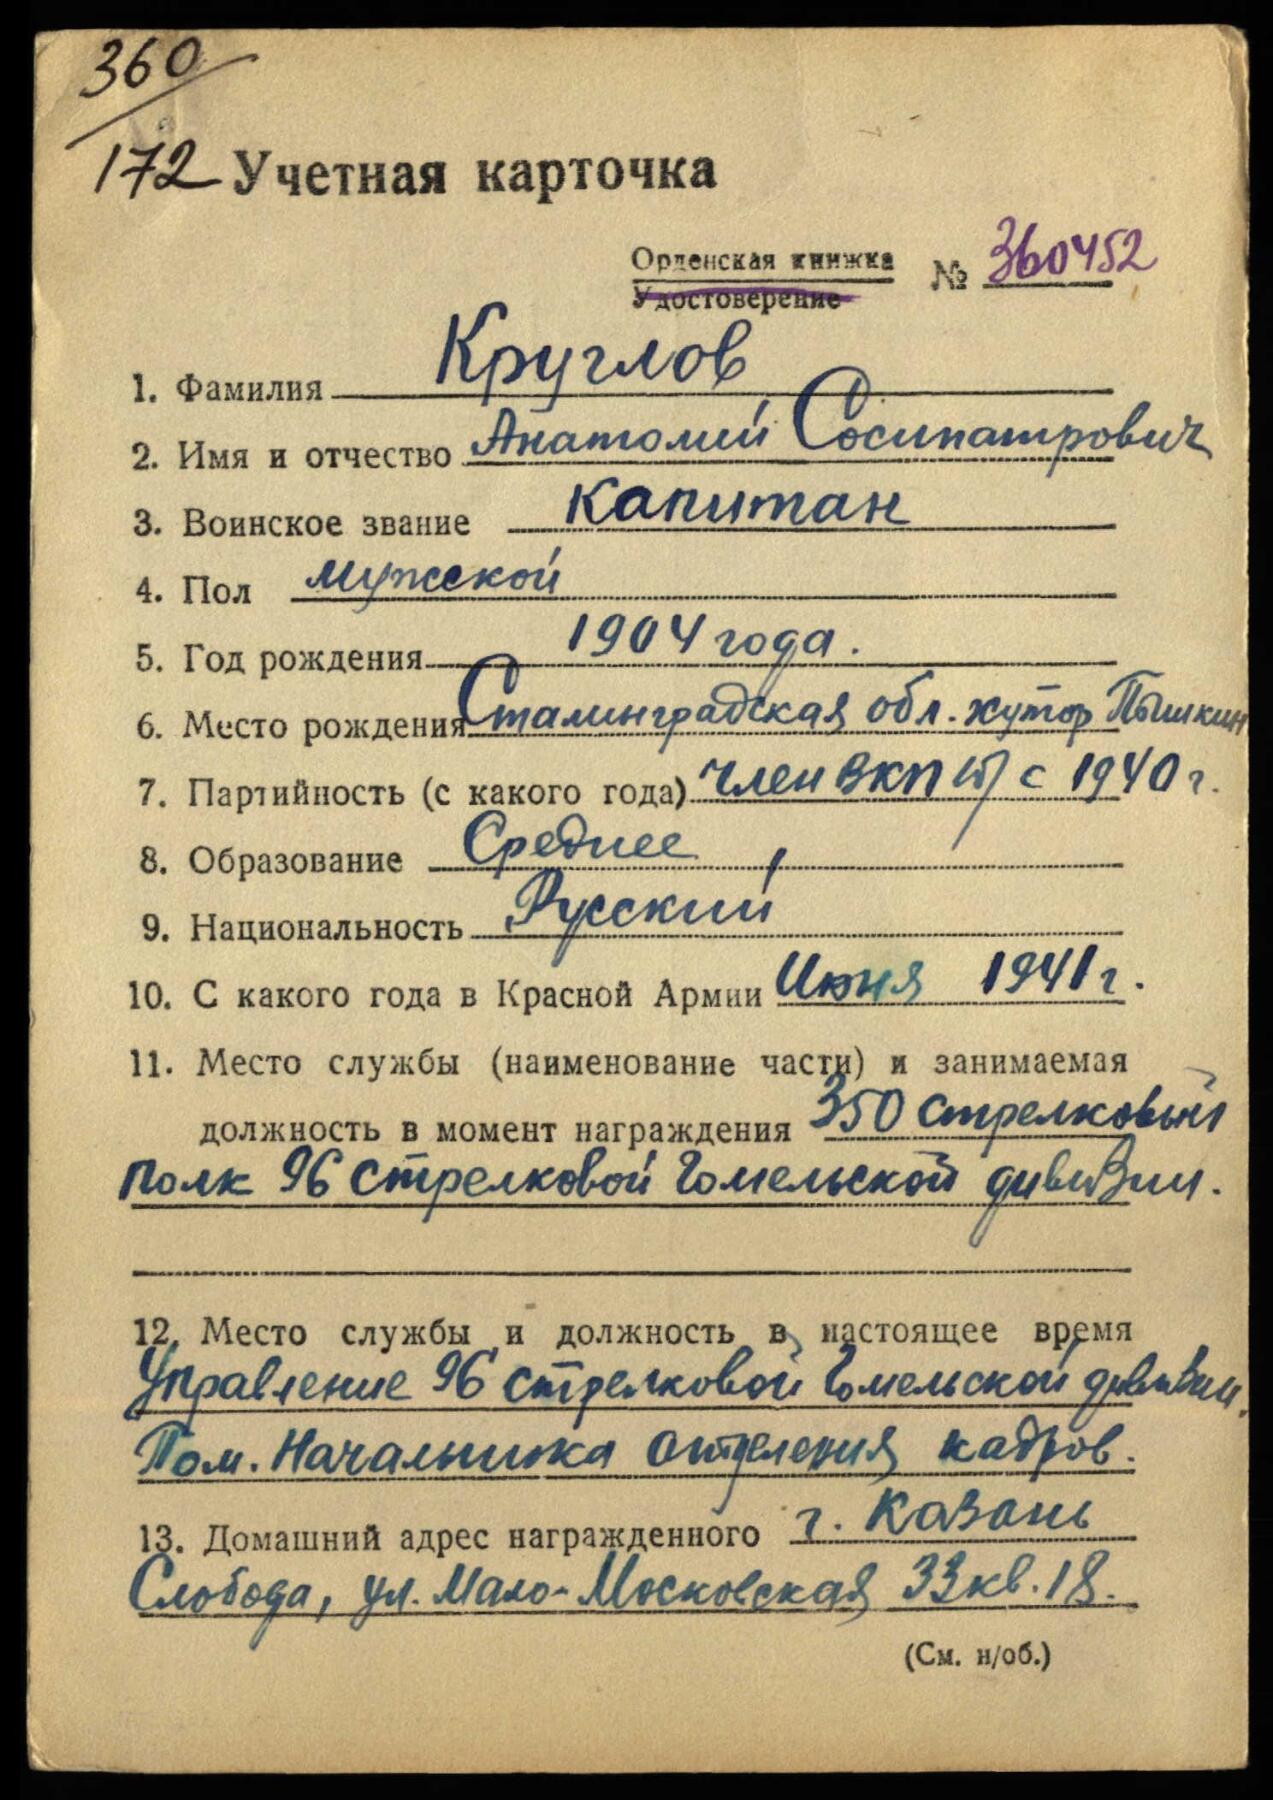 360
172 Учетная карточка
Орденская книжка № 360452
Удостоверение
1. Фамилия Круглов
2. Имя и отчество Анатолий Сосипатрович
3. Воинское звание капитан
4. Пол мужской
5. Год рождения 1904 года.
6. Место рождения Сталинградская обл. хутор Пышкин
7. Партийность (с какого года) член ВКП(б) с 1940 г.
8. Образование Среднее
9. Национальность Русский
10. С какого года в Красной Армии Июня 1941 г.
11. Место службы (наименование части) и занимаемая
должность в момент награждения 350 стрелковый
полк 96 стрелковой Гомельской дивизии.
12. Место службы и должность в настоящее время
Управление 96 стрелковой Гомельской дивизии.
Пом. Начальника отделения кадров.
13. Домашний адрес награжденного г. Казань
Слобода, ул. Мало-Московская 33 кв. 18.
(См. н/об.)